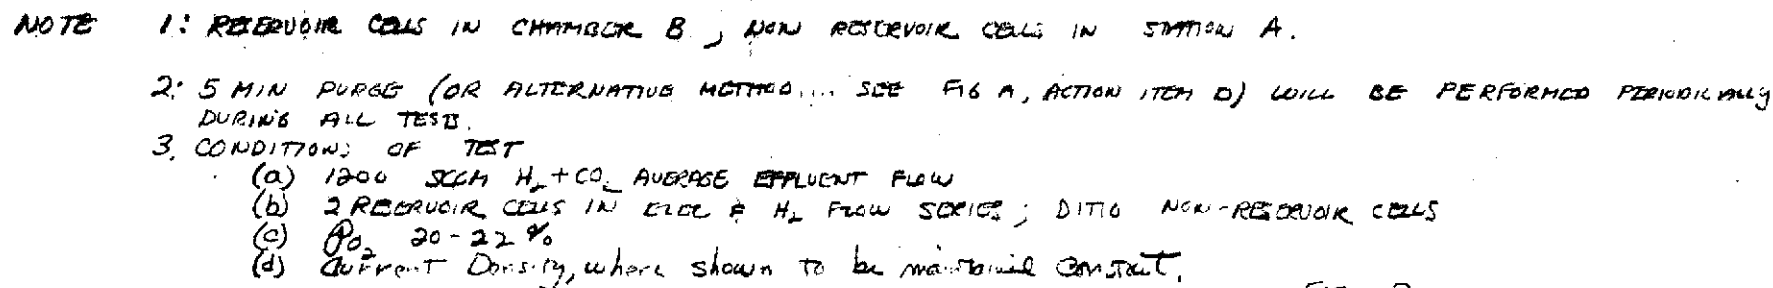 NOTE 1: RESERVOIR CELLS IN CHAMBER B, NON RESERVOIR CELLS IN STATION A.
2: 5 MIN PURGE (OR ALTERNATIVE METHOD... SEE FIG A, ACTION ITEM D) WILL BE PERFORMED PERIODICALLY
DURING ALL TESTS.
3. CONDITIONS OF TEST
(a) 1200 SCCM H2+CO2 AVERAGE EFFLUENT FLOW
(b) 2 RESERVOIR CELLS IN ELEC & H2 FLOW SERIES; DITTO NON-RESERVOIR CELLS
(c) PO2 20-22%
(d) Current Density, where shown to be maintained constant.